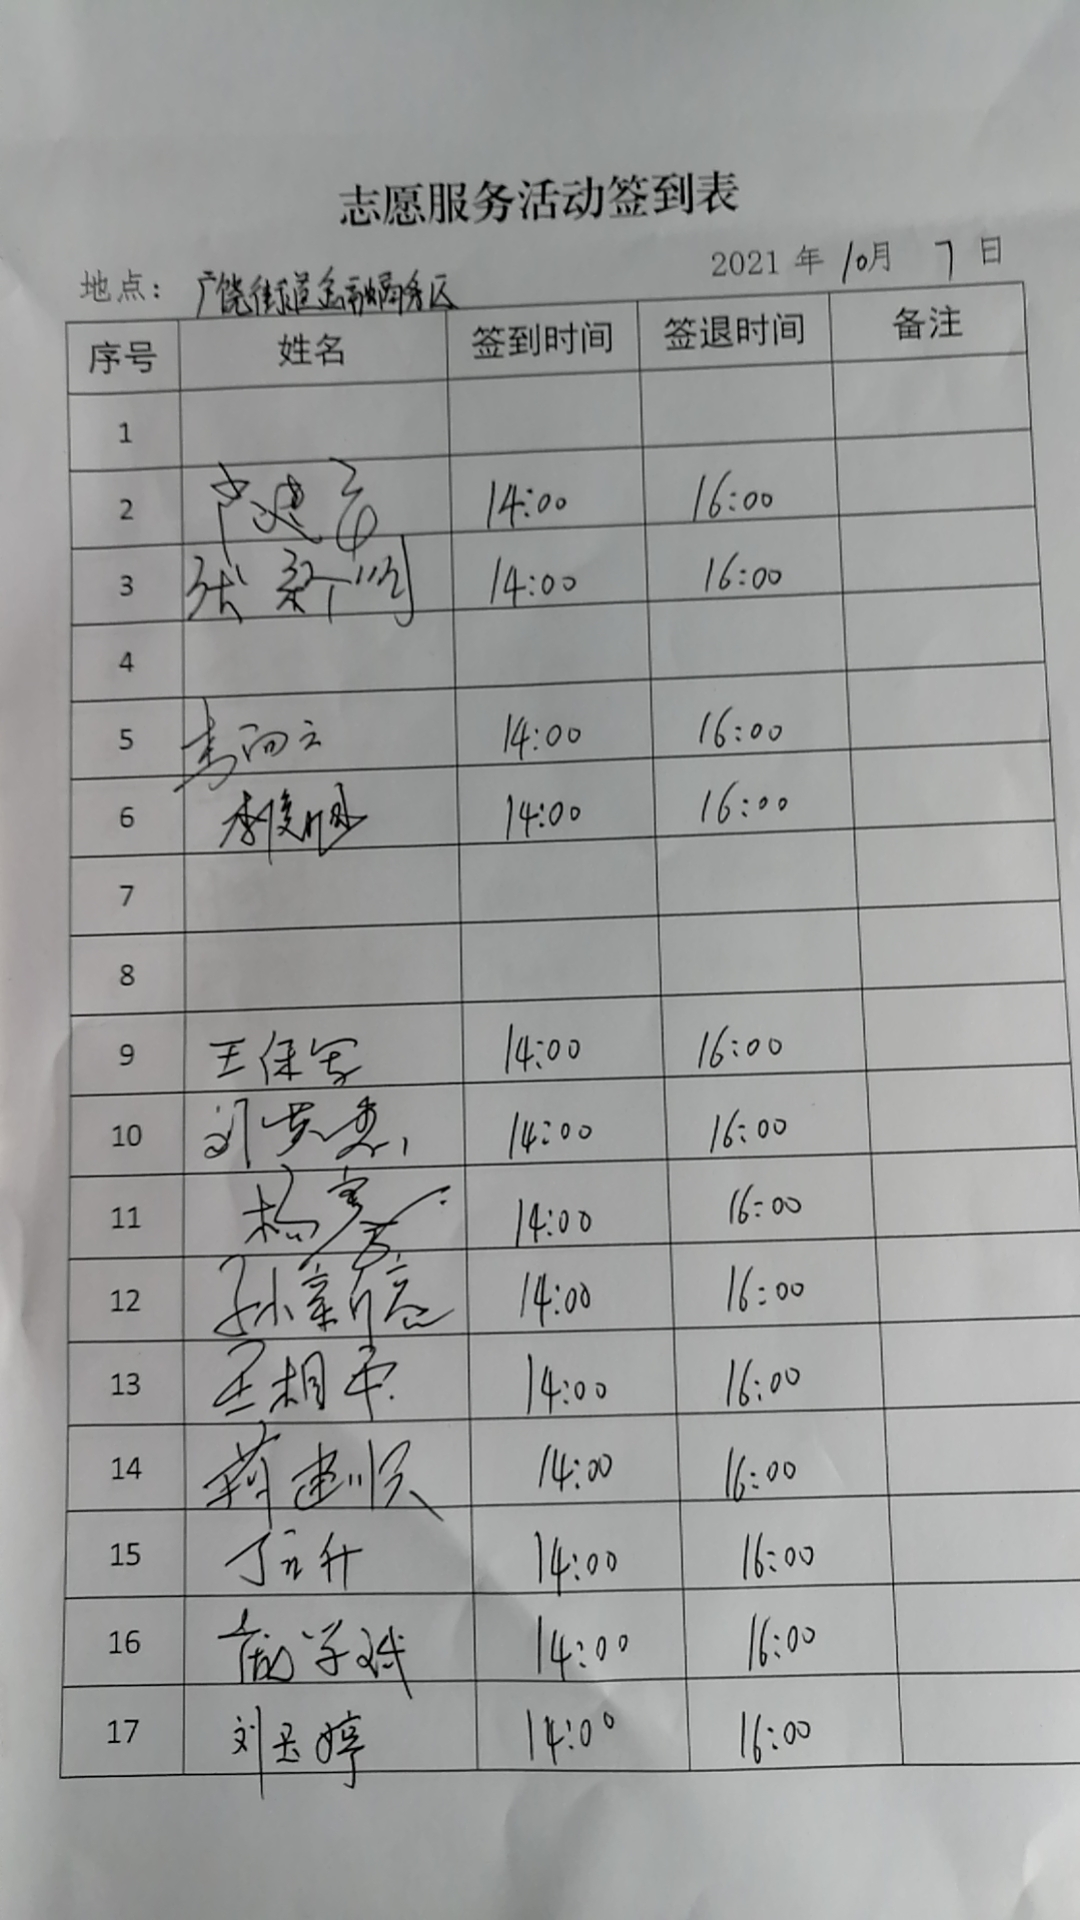 志愿服务活动签到表
地点：广饶街道金融商务区 2021 年 10月 7 日
序号 姓名 签到时间 签退时间 备注
1
2 14:00 16:00
3 张 14:00 16:00
4
5 14:00 16:00
6 李俊 14:00 16:00
7
8
9 王保军 14:00 16:00
10 刘 14:00 16:00
11 杨 14:00 16:00
12 孙新 14:00 16:00
13 王相平 14:00 16:00
14 蒋建顺 14:00 16:00
15 丁元升 14:00 16:00
16 学斌 14:00 16:00
17 刘玉婷 14:00 16:00